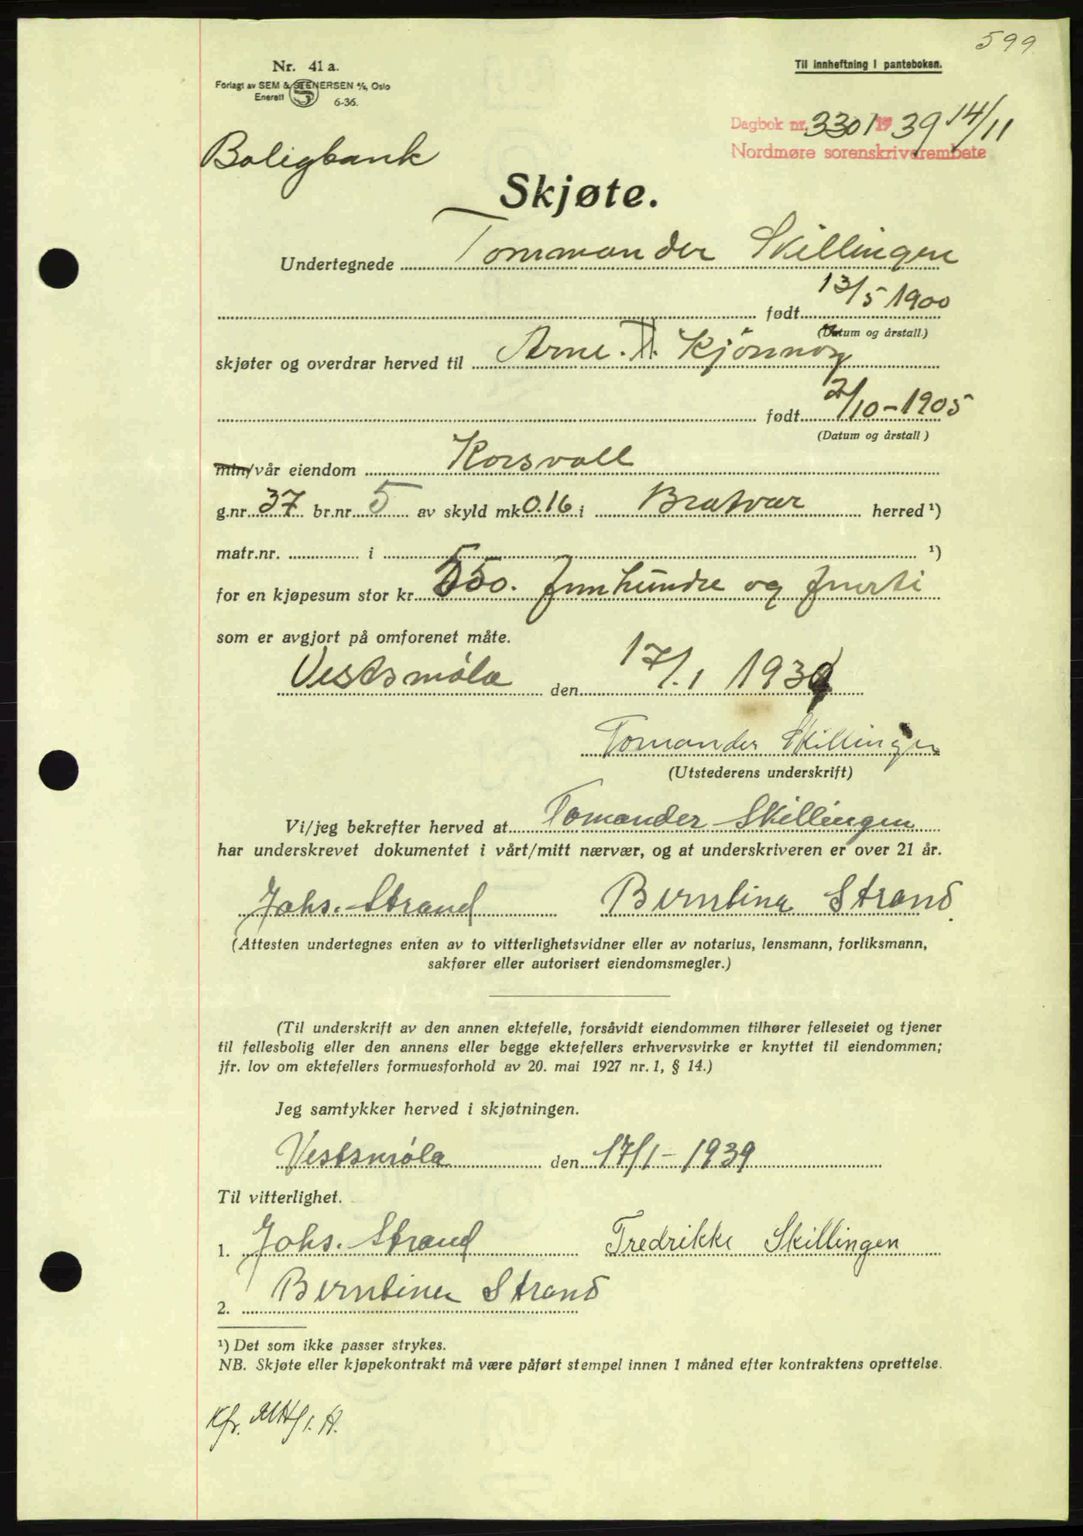 599
Nr. 41 a.
Forlagt av SEM & STENERSEN A/S, Oslo
Enerett 6-36.
Til innheftning i panteboken.
Dagbok nr. 3301 19 39 14/11
Nordmøre sorenskriverembete
Boligbank
Skjøte.
Undertegnede Tommander Skillingen
født 13/5 1900
(Datum og årstall.)
skjøter og overdrar herved til Arne. H. Kjönnøy
født 2/10-1905
(Datum og årstall)
min/vår eiendom Korsvoll
g.nr. 37 br.nr. 5 av skyld mk 0.16 i Bratvær herred ¹)
matr.nr. i ¹)
for en kjøpesum stor kr. 550. femhundre og femti
som er avgjort på omforenet måte.
Vestsmöla den 17/.1 1939
Tomander Skillingen
(Utstederens underskrift)
Vi/jeg bekrefter herved at Tomander Skillingen
har underskrevet dokumentet i vårt/mitt nærvær, og at underskriveren er over 21 år.
Johs. Strand Berntine Strand
(Attesten undertegnes enten av to vitterlighetsvidner eller av notarius, lensmann, forliksmann,
sakfører eller autorisert eiendomsmegler.)
(Til underskrift av den annen ektefelle, forsåvidt eiendommen tilhører felleseiet og tjener
til fellesbolig eller den annens eller begge ektefellers erhvervsvirke er knyttet til eiendommen;
jfr. lov om ektefellers formuesforhold av 20. mai 1927 nr. 1, § 14.)
Jeg samtykker herved i skjøtningen.
Vestsmöla den 17/1-1939
Til vitterlighet.
1. Johs. Strand Fredrikke Skillingen
2. Berntine Strand
¹) Det som ikke passer strykes.
NB. Skjøte eller kjøpekontrakt må være påført stempel innen 1 måned efter kontraktens oprettelse.
Kfr.